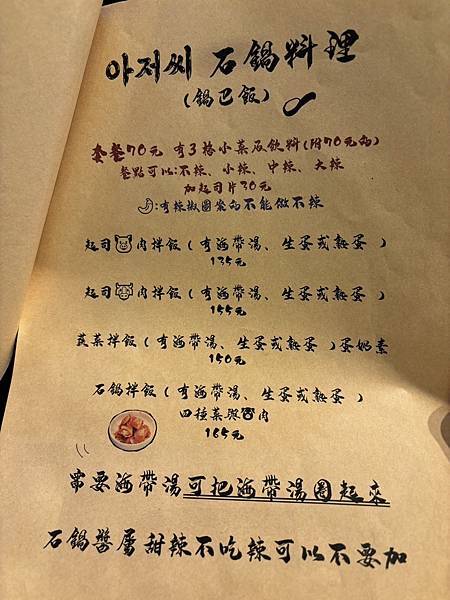 아저씨 石鍋料理
(鍋巴飯)
套餐70元 有3格小菜及飲料(附70元的)
餐點可以:不辣、小辣、中辣、大辣
加起司片30元
:有辣椒圖案的不能做不辣
起司肉拌飯(有海帶湯、生蛋或熟蛋 )
135元
起司肉拌飯(有海帶湯、生蛋或熟蛋 )
155元
蔬菜拌飯(有海帶湯、生蛋或熟蛋 )蛋奶素
150元
石鍋拌飯(有海帶湯、生蛋或熟蛋 )
四種菜與肉
165元
需要海帶湯可把海帶湯圈起來
石鍋醬屬甜辣不吃辣可以不要加